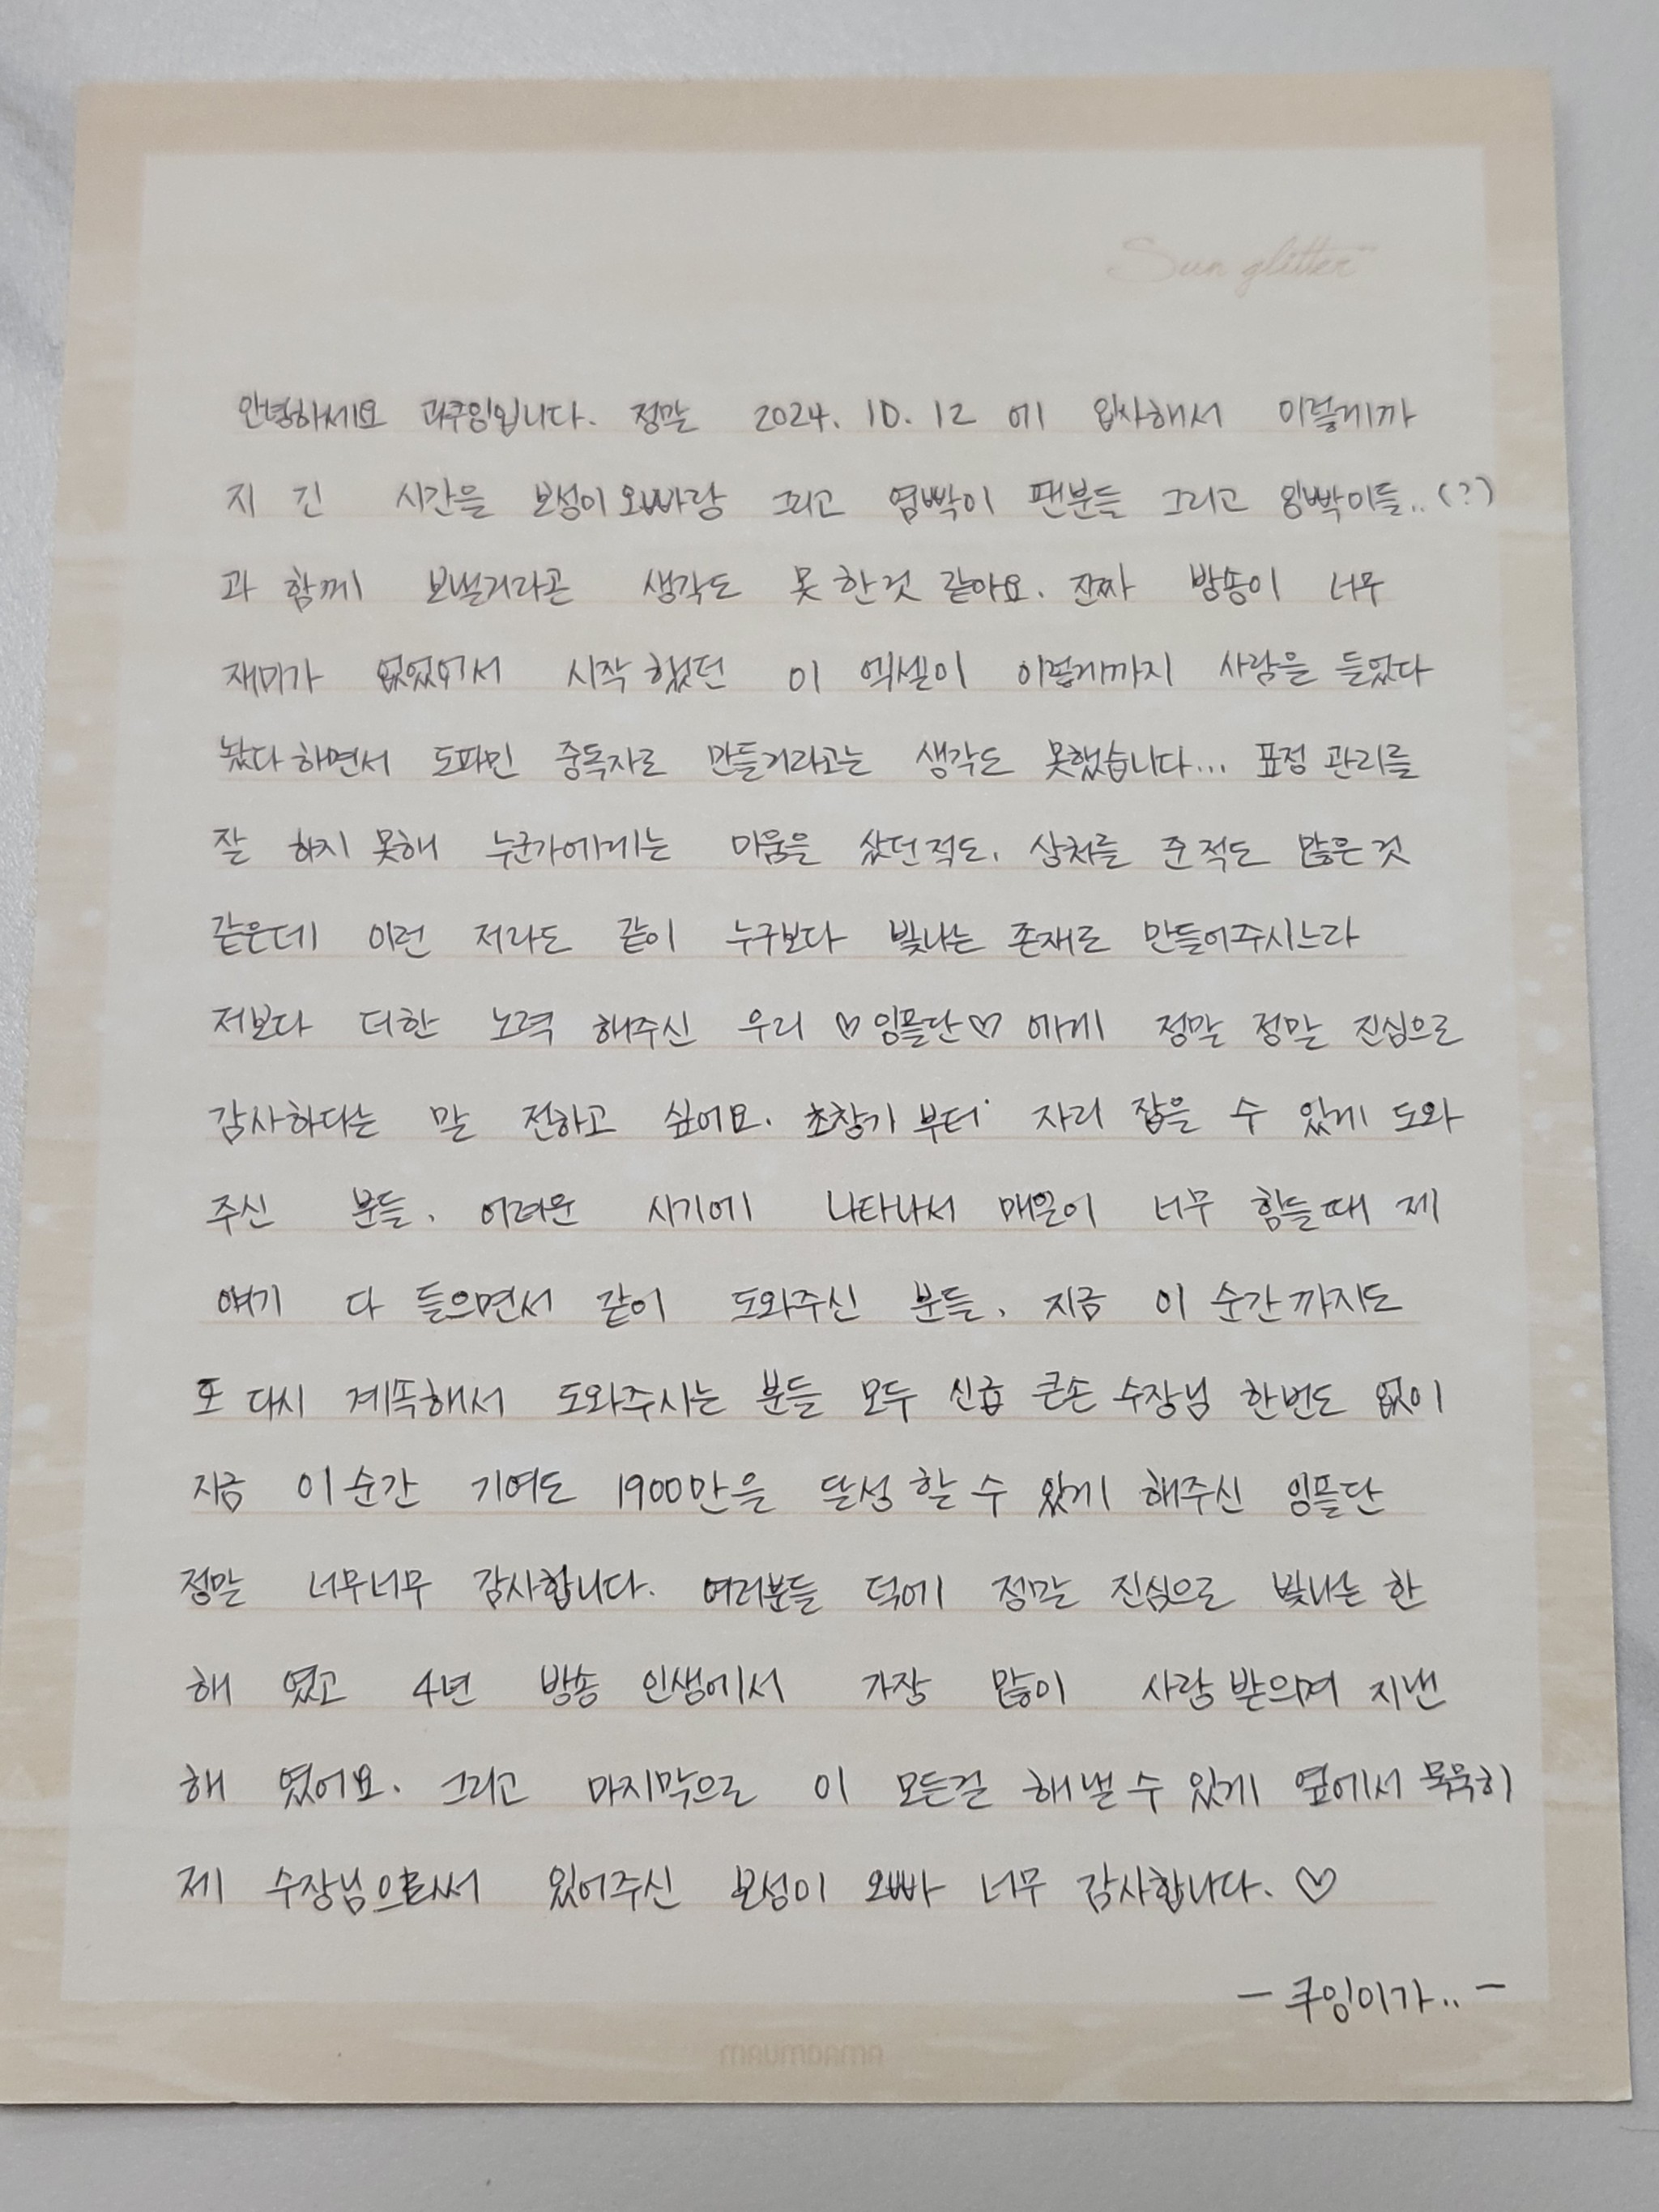 Sun glitter
안녕하세요 과쿠잉입니다. 정말 2024. 10. 12 에 입사해서 이렇게까
지 긴 시간을 보성이오빠랑 그리고 염빡이 팬분들 그리고 왕빡이들..(?)
과 함께 보낼거라곤 생각도 못한것 같아요. 진짜 방송이 너무
재미가 없었어서 시작했던 이 엑셀이 이렇게까지 사람을 들었다
놨다하면서 도파민 중독자로 만들거라고는 생각도 못했습니다... 표정관리를
잘 하지못해 누군가에게는 미움을 샀던적도, 상처를 준적도 많은것
같은데 이런 저라도 같이 누구보다 빛나는 존재로 만들어주시느라
저보다 더한 노력 해주신 우리 ♡잉플단♡ 에게 정말 정말 진심으로
감사하다는 말 전하고 싶어요. 초창기부터 자리 잡을 수 있게 도와
주신 분들, 어려운 시기에 나타나서 매일이 너무 힘들때 제
얘기 다 들으면서 같이 도와주신 분들, 지금 이 순간까지도
또 다시 계속해서 도와주시는 분들 모두 신급 큰손 수장님 한번도 없이
지금 이순간 기여도 1900만을 달성할수 있게 해주신 잉플단
정말 너무너무 감사합니다. 여러분들 덕에 정말 진심으로 빛나는 한
해 였고 4년 방송 인생에서 가장 많이 사랑받으며 지낸
해 였어요. 그리고 마지막으로 이 모든걸 해낼수 있게 옆에서 묵묵히
제 수장님으로써 있어주신 보성이 오빠 너무 감사합니다. ♡
- 쿠잉이가.. -